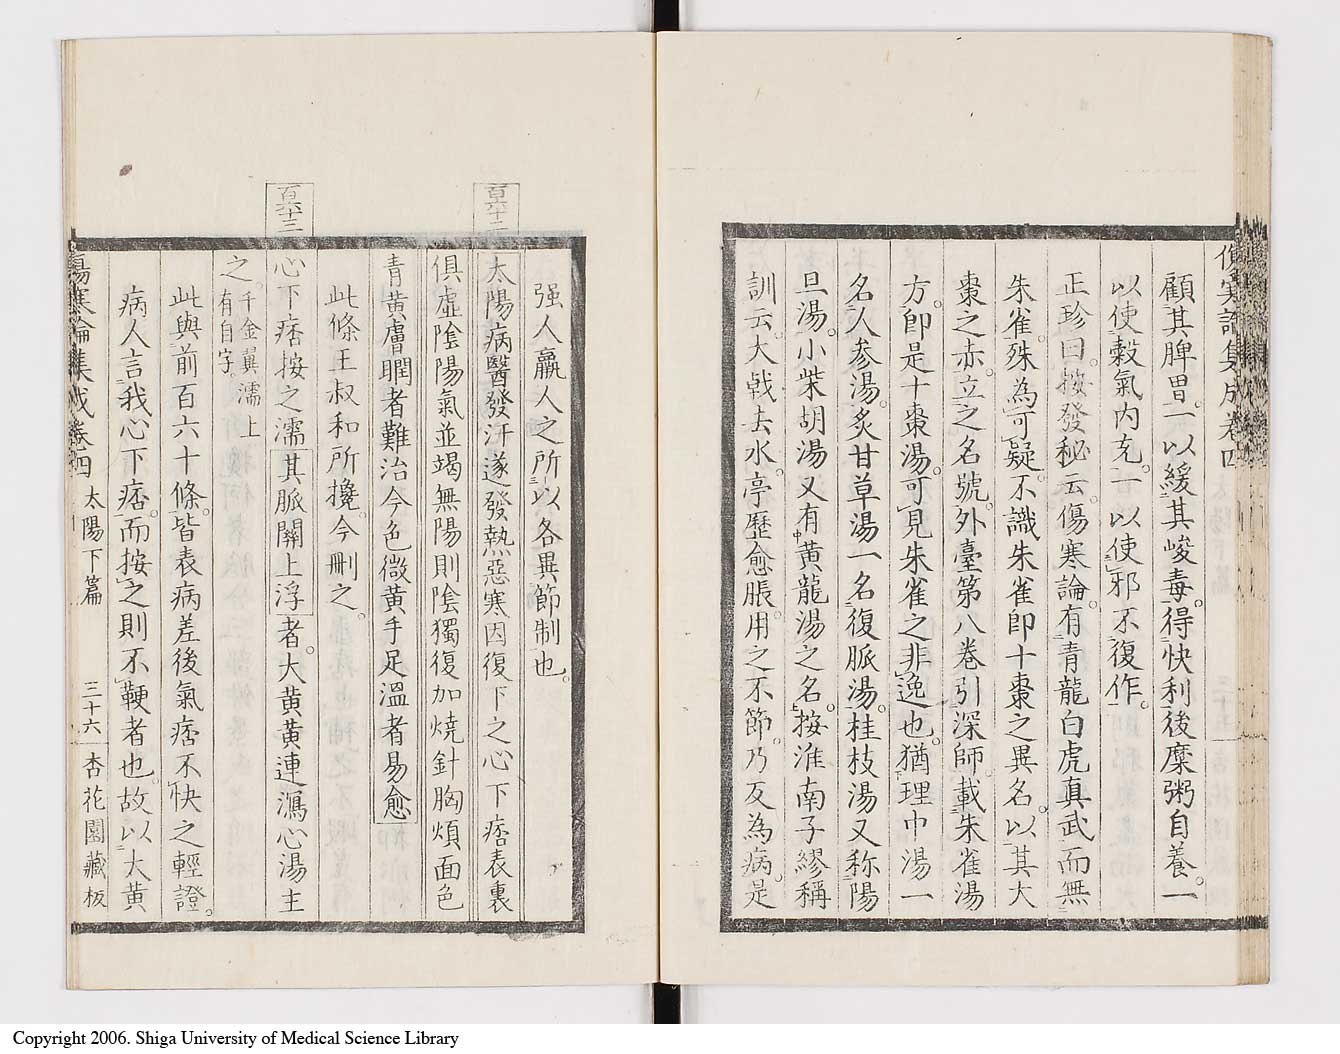 傷寒論集成卷四
顧其脾胃。一以緩其峻毒。得快利後糜粥自養。一
以使穀氣內充。一以使邪不復作。
正珍曰。按發秘云。傷寒論。有青龍白虎真武而無
朱雀。殊為可疑。不識朱雀卽十棗之異名。以其大
棗之赤。立之名號。外臺第八卷引深師。載朱雀湯
方。卽是十棗湯。可見朱雀之非逸也。猶理中湯一
名人參湯。炙甘草湯一名復脈湯。桂枝湯又称陽
旦湯。小柴胡湯又有黄龍湯之名。按淮南子繆稱
訓云。大戟去水。亭歷愈脹。用之不節。乃反為病。是
强人羸人之所以各異節制也。
百六十二
太陽病醫發汗遂發熱惡寒因復下之心下痞表裏
俱虛陰陽氣並竭無陽則陰獨復加燒針胸煩面色
青黄膚瞤者難治今色微黄手足溫者易愈
此條王叔和所攙。今刪之。
百六十三
心下痞按之濡其脈關上浮者。大黄黄連瀉心湯主
之。千金翼濡上有自字。
此與前百六十條。皆表病差後氣痞不快之輕證。
病人言我心下痞。而按之則不鞕者也。故以大黄
傷寒論集成卷四 太陽下篇 三十六 杏花園藏板
Copyright 2006. Shiga University of Medical Science Library